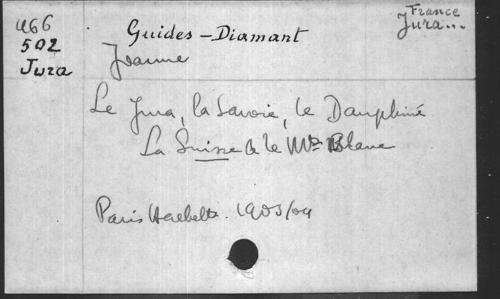 466
502
Jura
Guides-Diamant
France
Jura...
Joanne
Le Jura, la Savoie, le Dauphiné
La Suisse & le Mt Blanc
Paris Hachette. 1903/04